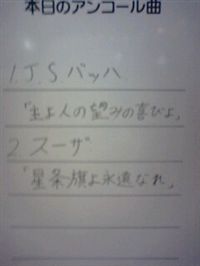 本日のアンコール曲
1. J.S バッハ
「主よ人の望みの喜びよ」
2. スーザ
「星条旗よ永遠なれ」